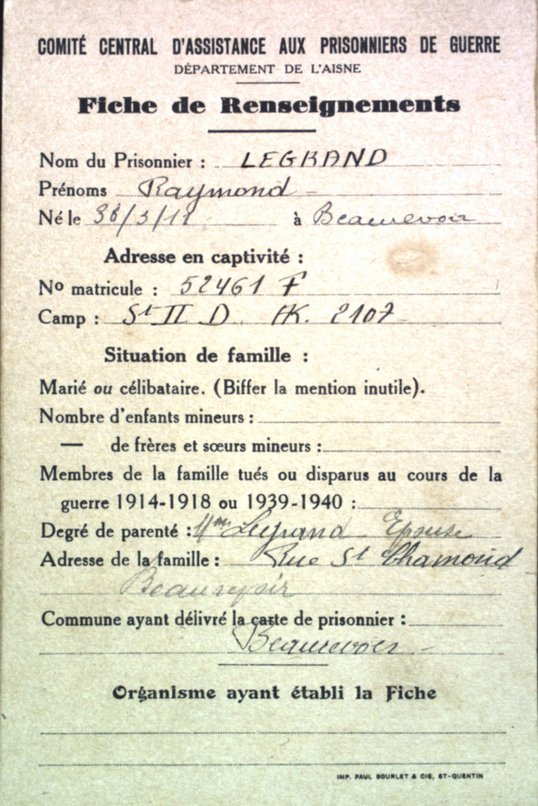 COMITÉ CENTRAL D'ASSISTANCE AUX PRISONNIERS DE GUERRE
DÉPARTEMENT DE L'AISNE
Fiche de Renseignements
Nom du Prisonnier : LEGRAND
Prénoms Raymond
Né le à Beaurevoir
Adresse en captivité :
Nº matricule : 52461 F
Camp : St II D 2107
Situation de famille :
Marié ou célibataire. (Biffer la mention inutile).
Nombre d'enfants mineurs :
— de frères et sœurs mineurs :
Membres de la famille tués ou disparus au cours de la
guerre 1914-1918 ou 1939-1940 :
Degré de parenté : Mme Legrand Epouse
Adresse de la famille : Rue St Chamond
Beaurevoir
Commune ayant délivré la carte de prisonnier :
Beaurevoir
Organisme ayant établi la Fiche
IMP. PAUL BOURLET & CIE, ST-QUENTIN